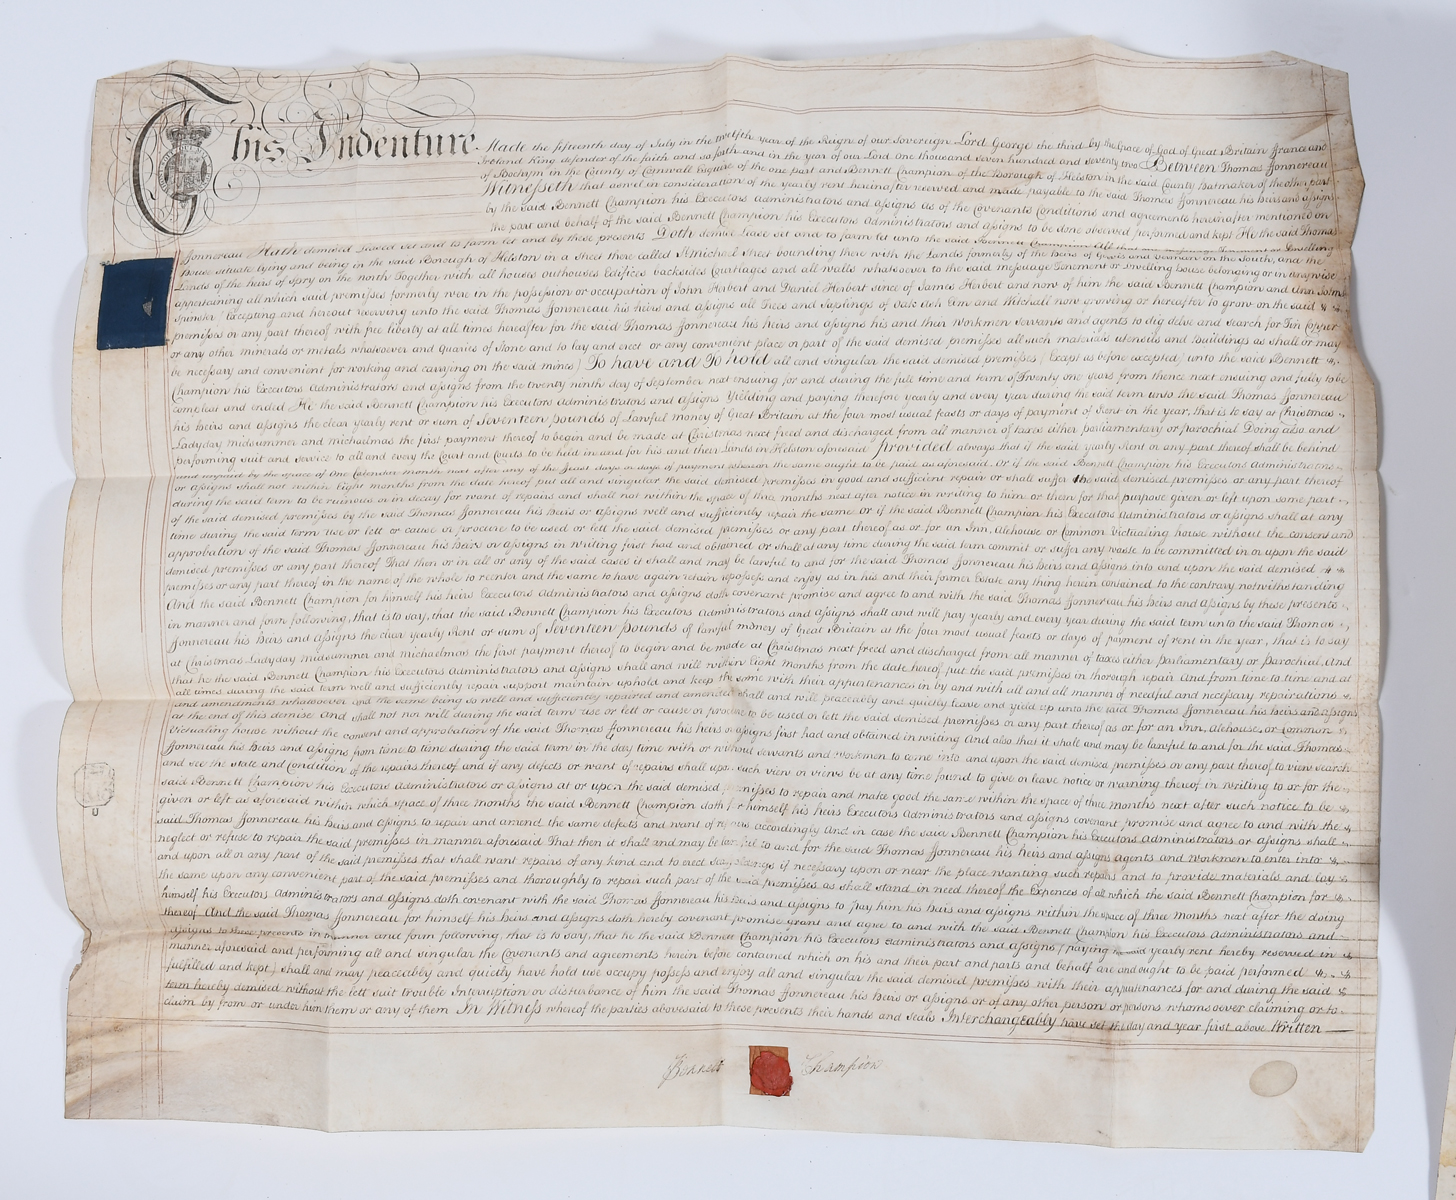 This Indenture Made the fifteenth day of July in the twelfth year of the Reign of our Sovereign Lord George the third by the Grace of God of Great Britain France and
Ireland King defender of the faith and so forth and in the year of our Lord One thousand seven hundred and seventy two Between Thomas Jonnereau
of Bochym in the County of Cornwall Esquire of the one part and Bennett Champion of the Borough of Helston in the said County Hatmaker of the other part
Witnesseth that as well in consideration of the yearly rent hereinafter reserved and made payable to the said Thomas Jonnereau his heirs and assigns
by the said Bennett Champion his Executors Administrators and assigns As of the Covenants Conditions and agreements hereinafter mentioned on
the part and behalf of the said Bennett Champion his Executors Administrators and assigns to be done observed performed and kept He the said Thomas
Jonnereau Hath demised Leased set and to farm let and by these presents Doth demise Lease set and to farm let unto the said Bennett Champion All that Tenement or Dwelling
House situate lying and being in the said Borough of Helston in a Street there called St Michael Street bounding there with the Lands formerly of the heirs of on the South, and the
Lands of the heirs of Spry on the north Together with all houses outhouses Edifices backsides Courtlages and all walls whatsoever to the said messuage Tenement or Dwelling house belonging or in any wise
appertaining all which said premisses formerly were in the possession or occupation of John Herbert and Daniel Herbert since of James Herbert and now of him the said Bennett Champion and Ann
Spinster (Excepting and hereout reserving unto the said Thomas Jonnereau his heirs and assigns all Trees and Saplings of Oak Ash Elm and Witchall now growing or hereafter to grow on the said
premisses or any part thereof with free liberty at all times hereafter for the said Thomas Jonnereau his heirs and assigns his and their workmen servants and agents to dig delve and search for Tin Copper
or any other minerals or metals whatsoever and Quaries of Stone and to lay and erect or any convenient place or part of the said demised premisses all such materials utensils and Buildings as shall or may
be necessary and convenient for working and carrying on the said mines) To have and To hold all and singular the said demised premisses (Except as before excepted) unto the said Bennett
Champion his Executors Administrators and assigns from the twenty ninth day of September next ensuing for and during the full time and term of Twenty one years from thence next ensuing and fully to be
compleat and ended He the said Bennett Champion his Executors Administrators and assigns Yielding and paying therefore yearly and every year during the said term unto the said Thomas Jonnereau
his heirs and assigns the clear yearly rent or sum of Seventeen pounds of Lawful money of Great Britain at the four most usual feasts or days of payment of Rent in the year, that is to say at Christmas
Ladyday midsummer and michaelmas the first payment thereof to begin and be made at Christmas next freed and discharged from all manner of taxes either parliamentary or parochial Doing also and
performing suit and service to all and every the Court and Courts to be held in and for his and their Lands in Helston aforesaid Provided always that if the said yearly Rent or any part thereof shall be behind
and unpaid by the space of One Calendar Month next after any of the feast days or days of payment whereon the same ought to be paid as aforesaid. Or if the said Bennett Champion his Executors Administrators
or assigns shall not within Eight months from the date hereof put all and singular the said demised premisses in good and sufficient repair or shall suffer the said demised premisses or any part thereof
during the said term to be ruinous or in decay for want of repairs and shall not within the space of three months next after notice in writing to him or them for that purpose given or left upon some part
of the said demised premisses by the said Thomas Jonnereau his heirs or assigns well and sufficiently repair the same or if the said Bennett Champion his Executors Administrators or assigns shall at any
time during the said term use or lett or cause or procure to be used or lett the said demised premisses or any part thereof as or for an Inn, Alehouse or Common Victualing house without the consent and
approbation of the said Thomas Jonnereau his heirs or assigns in writing first had and obtained or shall at any time during the said term commit or suffer any waste to be committed in or upon the said
demised premisses or any part thereof That then or in all or any of the said cases it shall and may be lawful to and for the said Thomas Jonnereau his heirs and assigns into and upon the said demised
premisses or any part thereof in the name of the whole to reenter and the same to have again retain repossess and enjoy as in his and their former Estate any thing herein contained to the contrary notwithstanding
And the said Bennett Champion for himself his heirs Executors Administrators and assigns doth covenant promise and agree to and with the said Thomas Jonnereau his heirs and assigns by these presents
in manner and form following, that is to say, that the said Bennett Champion his Executors Administrators and assigns shall and will pay yearly and every year during the said term unto the said Thomas
Jonnereau his heirs and assigns the clear yearly Rent or sum of Seventeen pounds of lawful money of Great Britain at the four most usual feasts or days of payment of rent in the year, that is to say
at Christmas Ladyday midsummer and michaelmas the first payment thereof to begin and be made at Christmas next freed and discharged from all manner of taxes either Parliamentary or parochial And
that he the said Bennett Champion his Executors Administrators and assigns shall and will within Eight Months from the date hereof put the said premisses in thorough repair And from time to time and at
all times during the said term well and sufficiently repair support maintain uphold and keep the same with their appurtenances in by and with all and all manner of needful and necessary repairations
and amendments whatsoever and the same being so well and sufficiently repaired and amended shall and will peaceably and quietly leave and yield up unto the said Thomas Jonnereau his heirs and assigns
at the end of this demise And shall not nor will during the said term use or lett or cause or procure to be used or lett the said demised premisses or any part thereof as or for an Inn, Alehouse, or Common
Victualing house without the consent and approbation of the said Thomas Jonnereau his heirs or assigns first had and obtained in writing And also that it shall and may be lawful to and for the said Thomas
Jonnereau his Heirs and assigns from time to time during the said term in the day time with or without servants and workmen to come into and upon the said demised premisses or any part thereof to view search
and see the state and Condition of the repairs thereof and if any defects or want of repairs shall upon such view or views be at any time found to give or leave notice or warning thereof in writing to or for the
said Bennett Champion his Executors Administrators or assigns at or upon the said demised premisses to repair and make good the same within the space of three months next after such notice to be
given or left as aforesaid within which space of three months the said Bennett Champion doth for himself his heirs Executors Administrators and assigns covenant promise and agree to and with the
said Thomas Jonnereau his heirs and assigns to repair and amend the same defects and want of repairs accordingly And in case the said Bennett Champion his Executors Administrators or assigns shall
neglect or refuse to repair the said premisses in manner aforesaid That then it shall and may be lawful to and for the said Thomas Jonnereau his heirs and assigns agents and workmen to enter into
and upon all or any part of the said premisses that shall want repairs of any kind and to erect scaffoldings if necessary upon or near the place wanting such repairs and to provide materials and lay
the same upon any convenient part of the said premisses and thoroughly to repair such part of the said premisses as shall stand in need thereof the Expences of all which the said Bennett Champion for
himself his Executors Administrators and assigns doth covenant with the said Thomas Jonnereau his heirs and assigns to pay him his heirs and assigns within the space of three months next after the doing
thereof And the said Thomas Jonnereau for himself his heirs and assigns doth hereby covenant promise grant and agree to and with the said Bennett Champion his Executors Administrators and
assigns to these presents in manner and form following, that is to say, that he the said Bennett Champion his Executors Administrators and assigns (paying the said yearly rent hereby reserved in
manner aforesaid and performing all and singular the Covenants and agreements herein before contained which on his and their part and parts and behalf are and ought to be paid performed
fulfilled and kept) shall and may peaceably and quietly have hold use occupy possess and enjoy all and singular the said demised premisses with their appurtenances for and during the said
term hereby demised without the lett suit trouble Interruption or disturbance of him the said Thomas Jonnereau his heirs or assigns or of any other person or persons whomsoever claiming or to
claim by from or under him them or any of them In Witness whereof the parties abovesaid to these presents their hands and seals Interchangeably have set the day and year first above Written
Bennett Champion